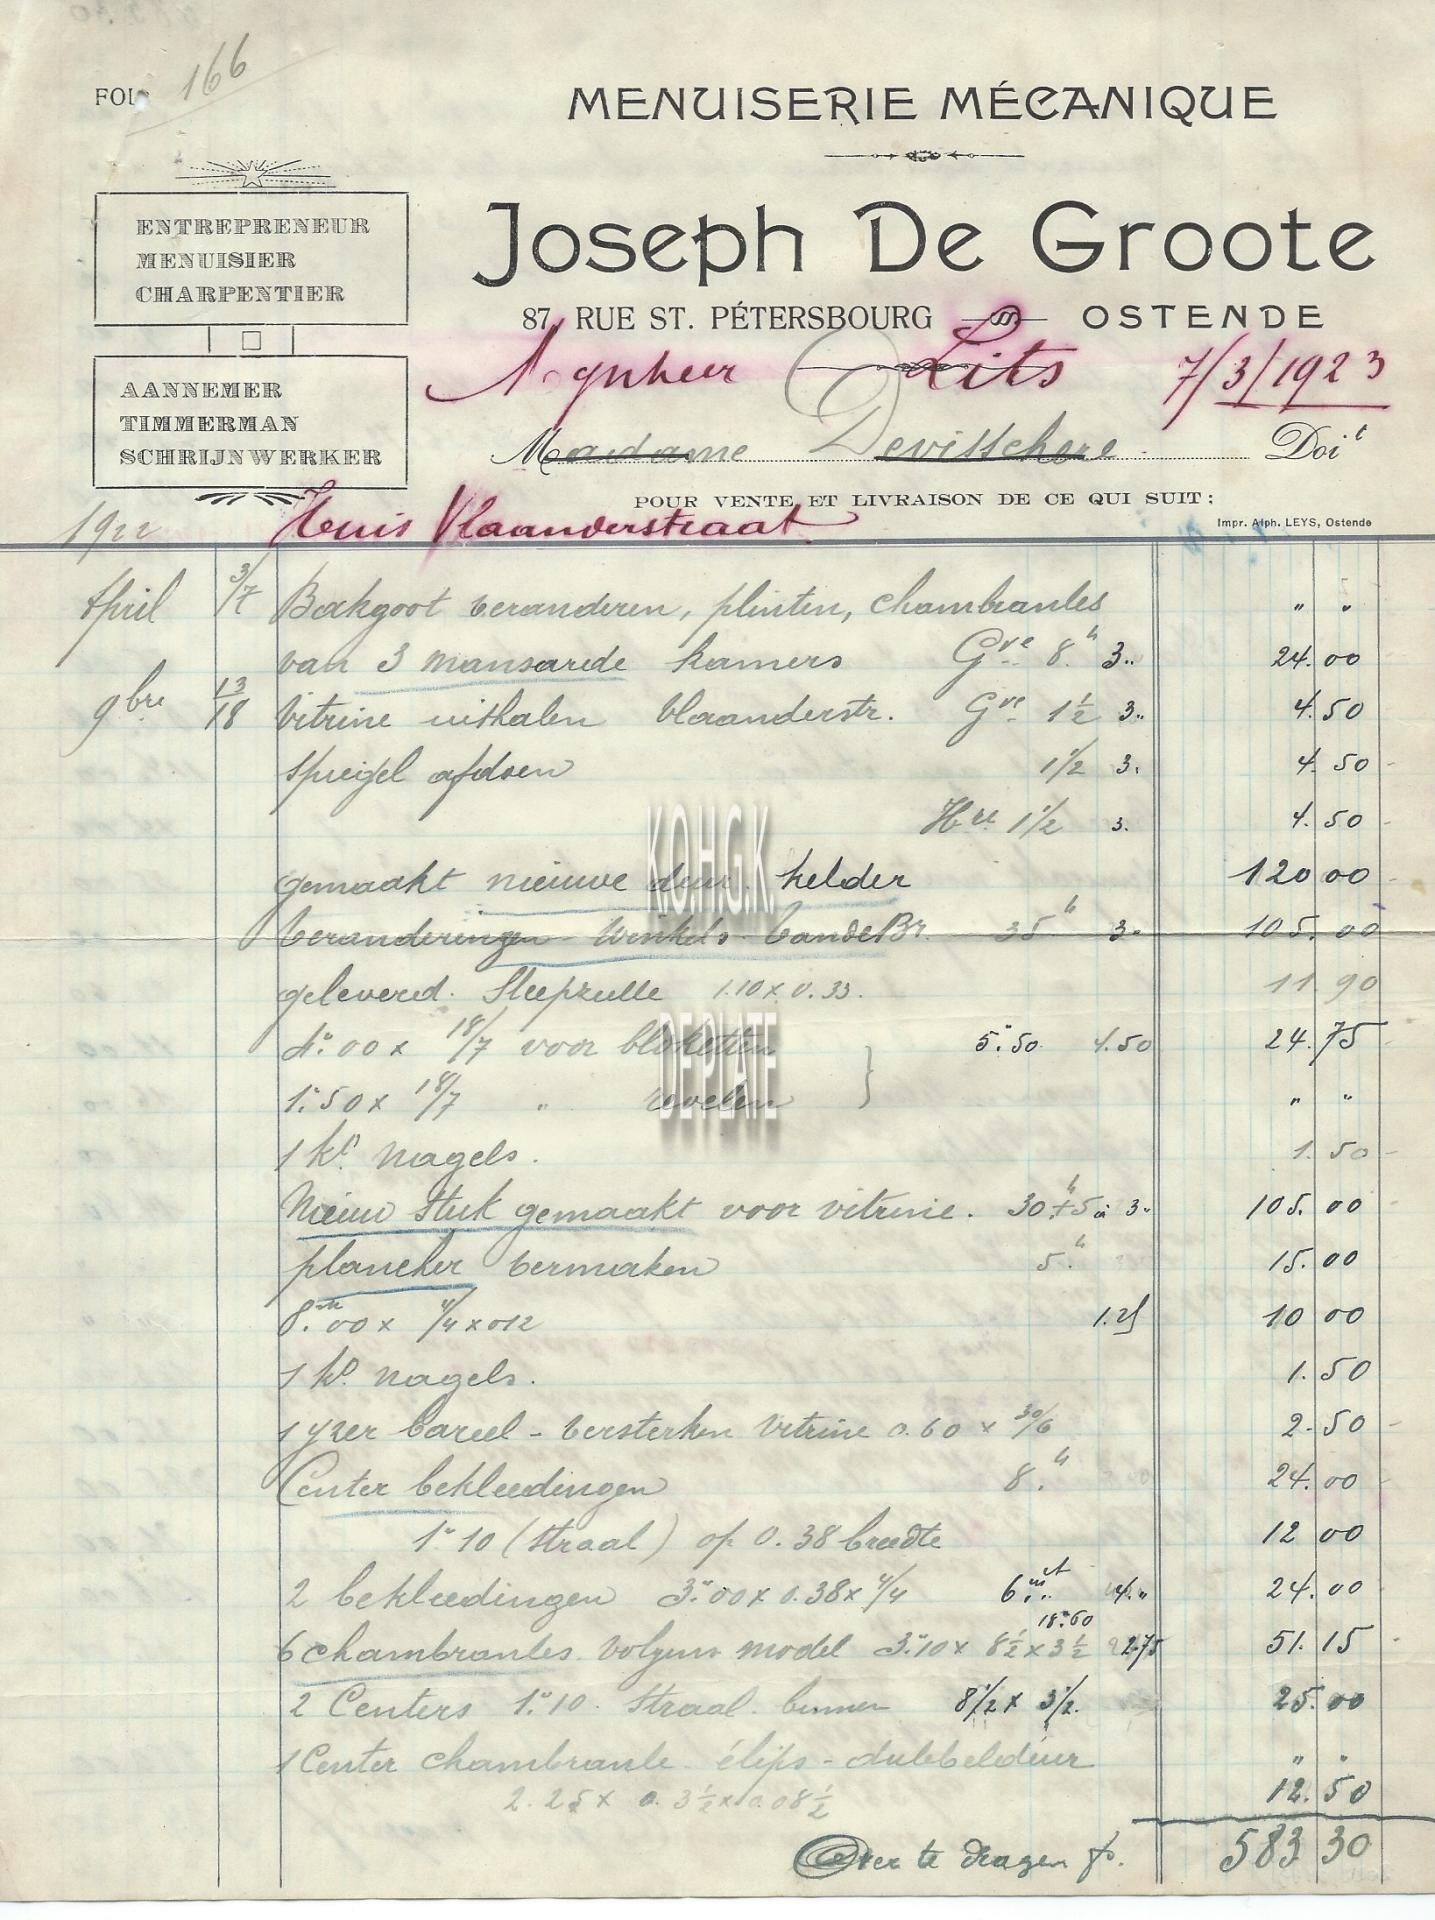 166
MENUISERIE MÉCANIQUE
ENTREPRENEUR
MENUISIER
CHARPENTIER
Joseph De Groote
87, RUE ST. PÉTERSBOURG OSTENDE
AANNEMER
TIMMERMAN
SCHRIJNWERKER
Mynheer Lits 7/3/1923
Madame Devisschere Doit
POUR VENTE ET LIVRAISON DE CE QUI SUIT:
Impr. Alph. LEYS, Ostende
1922 Huis Vlaanderstraat
April 3/7 Bakgoot veranderen, plinten, chambranles " "
van 3 mansarde kamers Gve 8.h 3.. 24.00
9bre 13/18 Vitrine uithalen Vlaanderstr. Gve 1½ 3.. 4.50
spiegel afdoen 1½ 3. 4.50
Hre 1½ 3. 4.50
gemaakt nieuwe deur. kelder 120 00
Veranderingen Winkels VandeBr. 35h 3. 105.00
geleverd. Sleepzulle 1.10 x 0.33. 11.90
4m.00 x 18/7 voor bloketten 5m.50 4.50 24.75
1m.50 x 18/7 " } " "
1 ko. nagels. 1.50
Nieuw stuk gemaakt voor vitrine. 30h+5 à 3.. 105.00
plancher vermaken 5.h 15.00
8.m00 x 4/4 x 012 1.25 10 00
1 ko. nagels. 1.50
1 yzer bareel - versterken Vitrine 0.60 x 30/6 2.50
Center bekleedingen 8.h 24.00
1m10 (straal) op 0.38 breedte 12 00
2 bekleedingen 3m.00 x 0.38 x 4/4 6m.. 4.. 24.00
18m.60
6 chambranles volgens model 3m.10 x 8½ x 3½ 2.75 51.15
2 Centers 1m.10. Straal. binnen 8½ x 3½. 25.00
1 Center chambranle - élips - dubbeldeur " "
2.25 x 0.3½ x 0.08½ 12.50
Over te dragen fr. 583 30
K.O.H.G.K.
DEPLATE